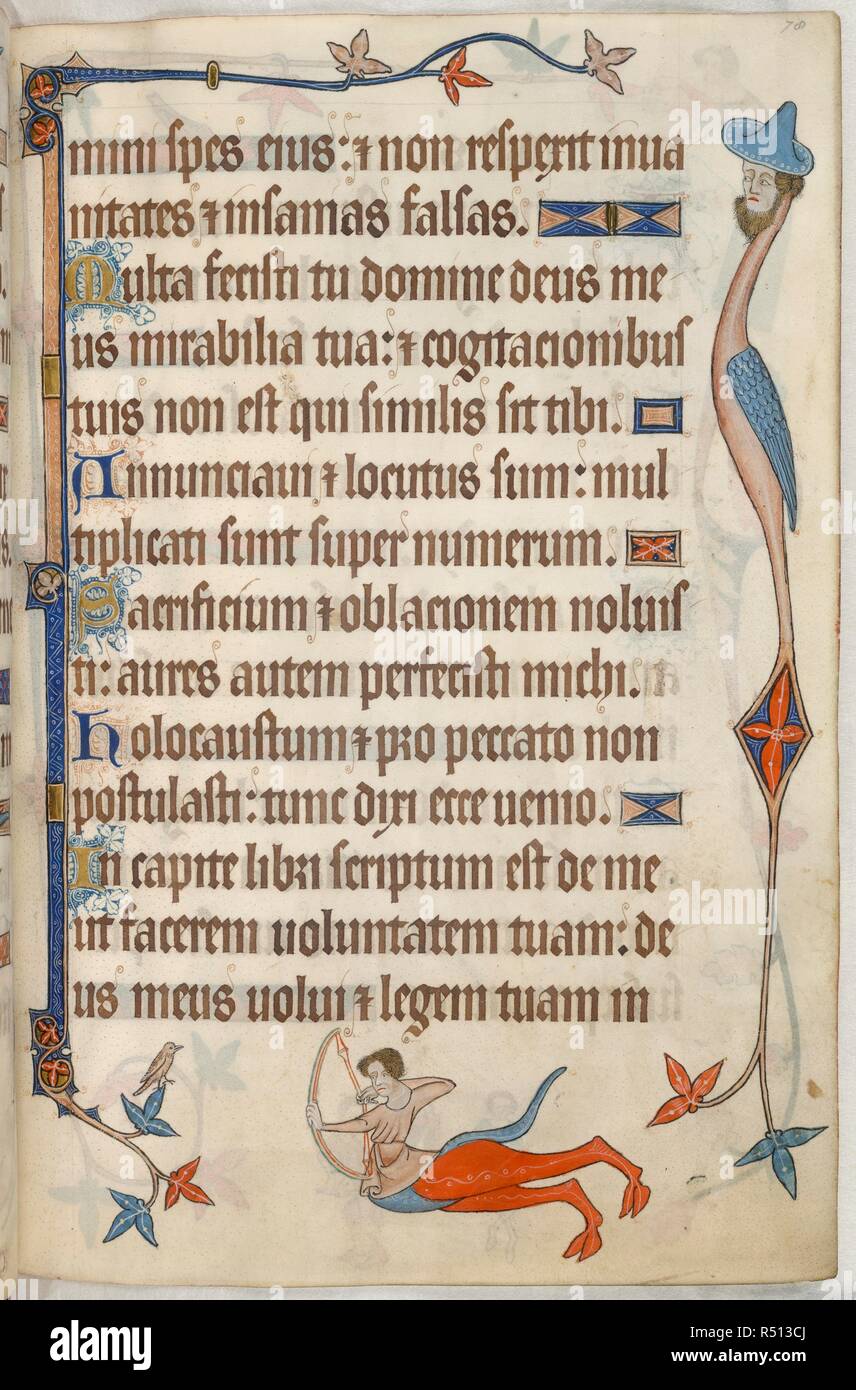 78
mini spes eius: ⁊ non respexit inua
nitates ⁊ insanias falsas.
Multa fecisti tu domine deus me
us mirabilia tua: ⁊ cogitacionibus
tuis non est qui similis sit tibi.
Annunciaui ⁊ locutus sum: mul
tiplicati sunt super numerum.
Sacrificium ⁊ oblacionem noluis
ti: aures autem perfecisti michi.
Holocaustum ⁊ pro peccato non
postulasti: tunc dixi ecce uenio.
In capite libri scriptum est de me
ut facerem uoluntatem tuam: de
us meus uolui ⁊ legem tuam in
alamy
Image ID: R513CJ
www.alamy.com